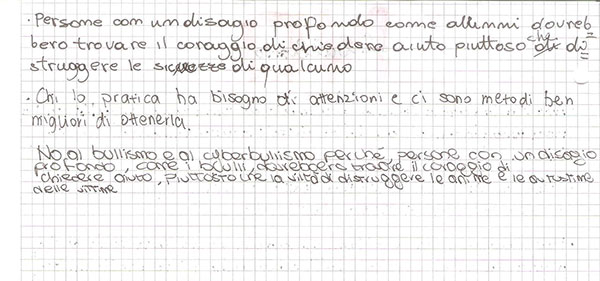 · Persone con un disagio profondo come allunni dovreb
bero trovare il coraggio di chiedere aiuto piuttoso che di di
struggere le sicurezze di qualcuno
· Chi lo pratica ha bisogno di attenzioni e ci sono metodi ben
migliori di ottenerla.
No al bullismo e al cyberbullismo perché, persone con un disagio
profondo, come i bulli, dovrebbero trovare il coraggio di
chiedere aiuto, piuttosto che la viltà di distruggere le anime e le autostime
delle vittime